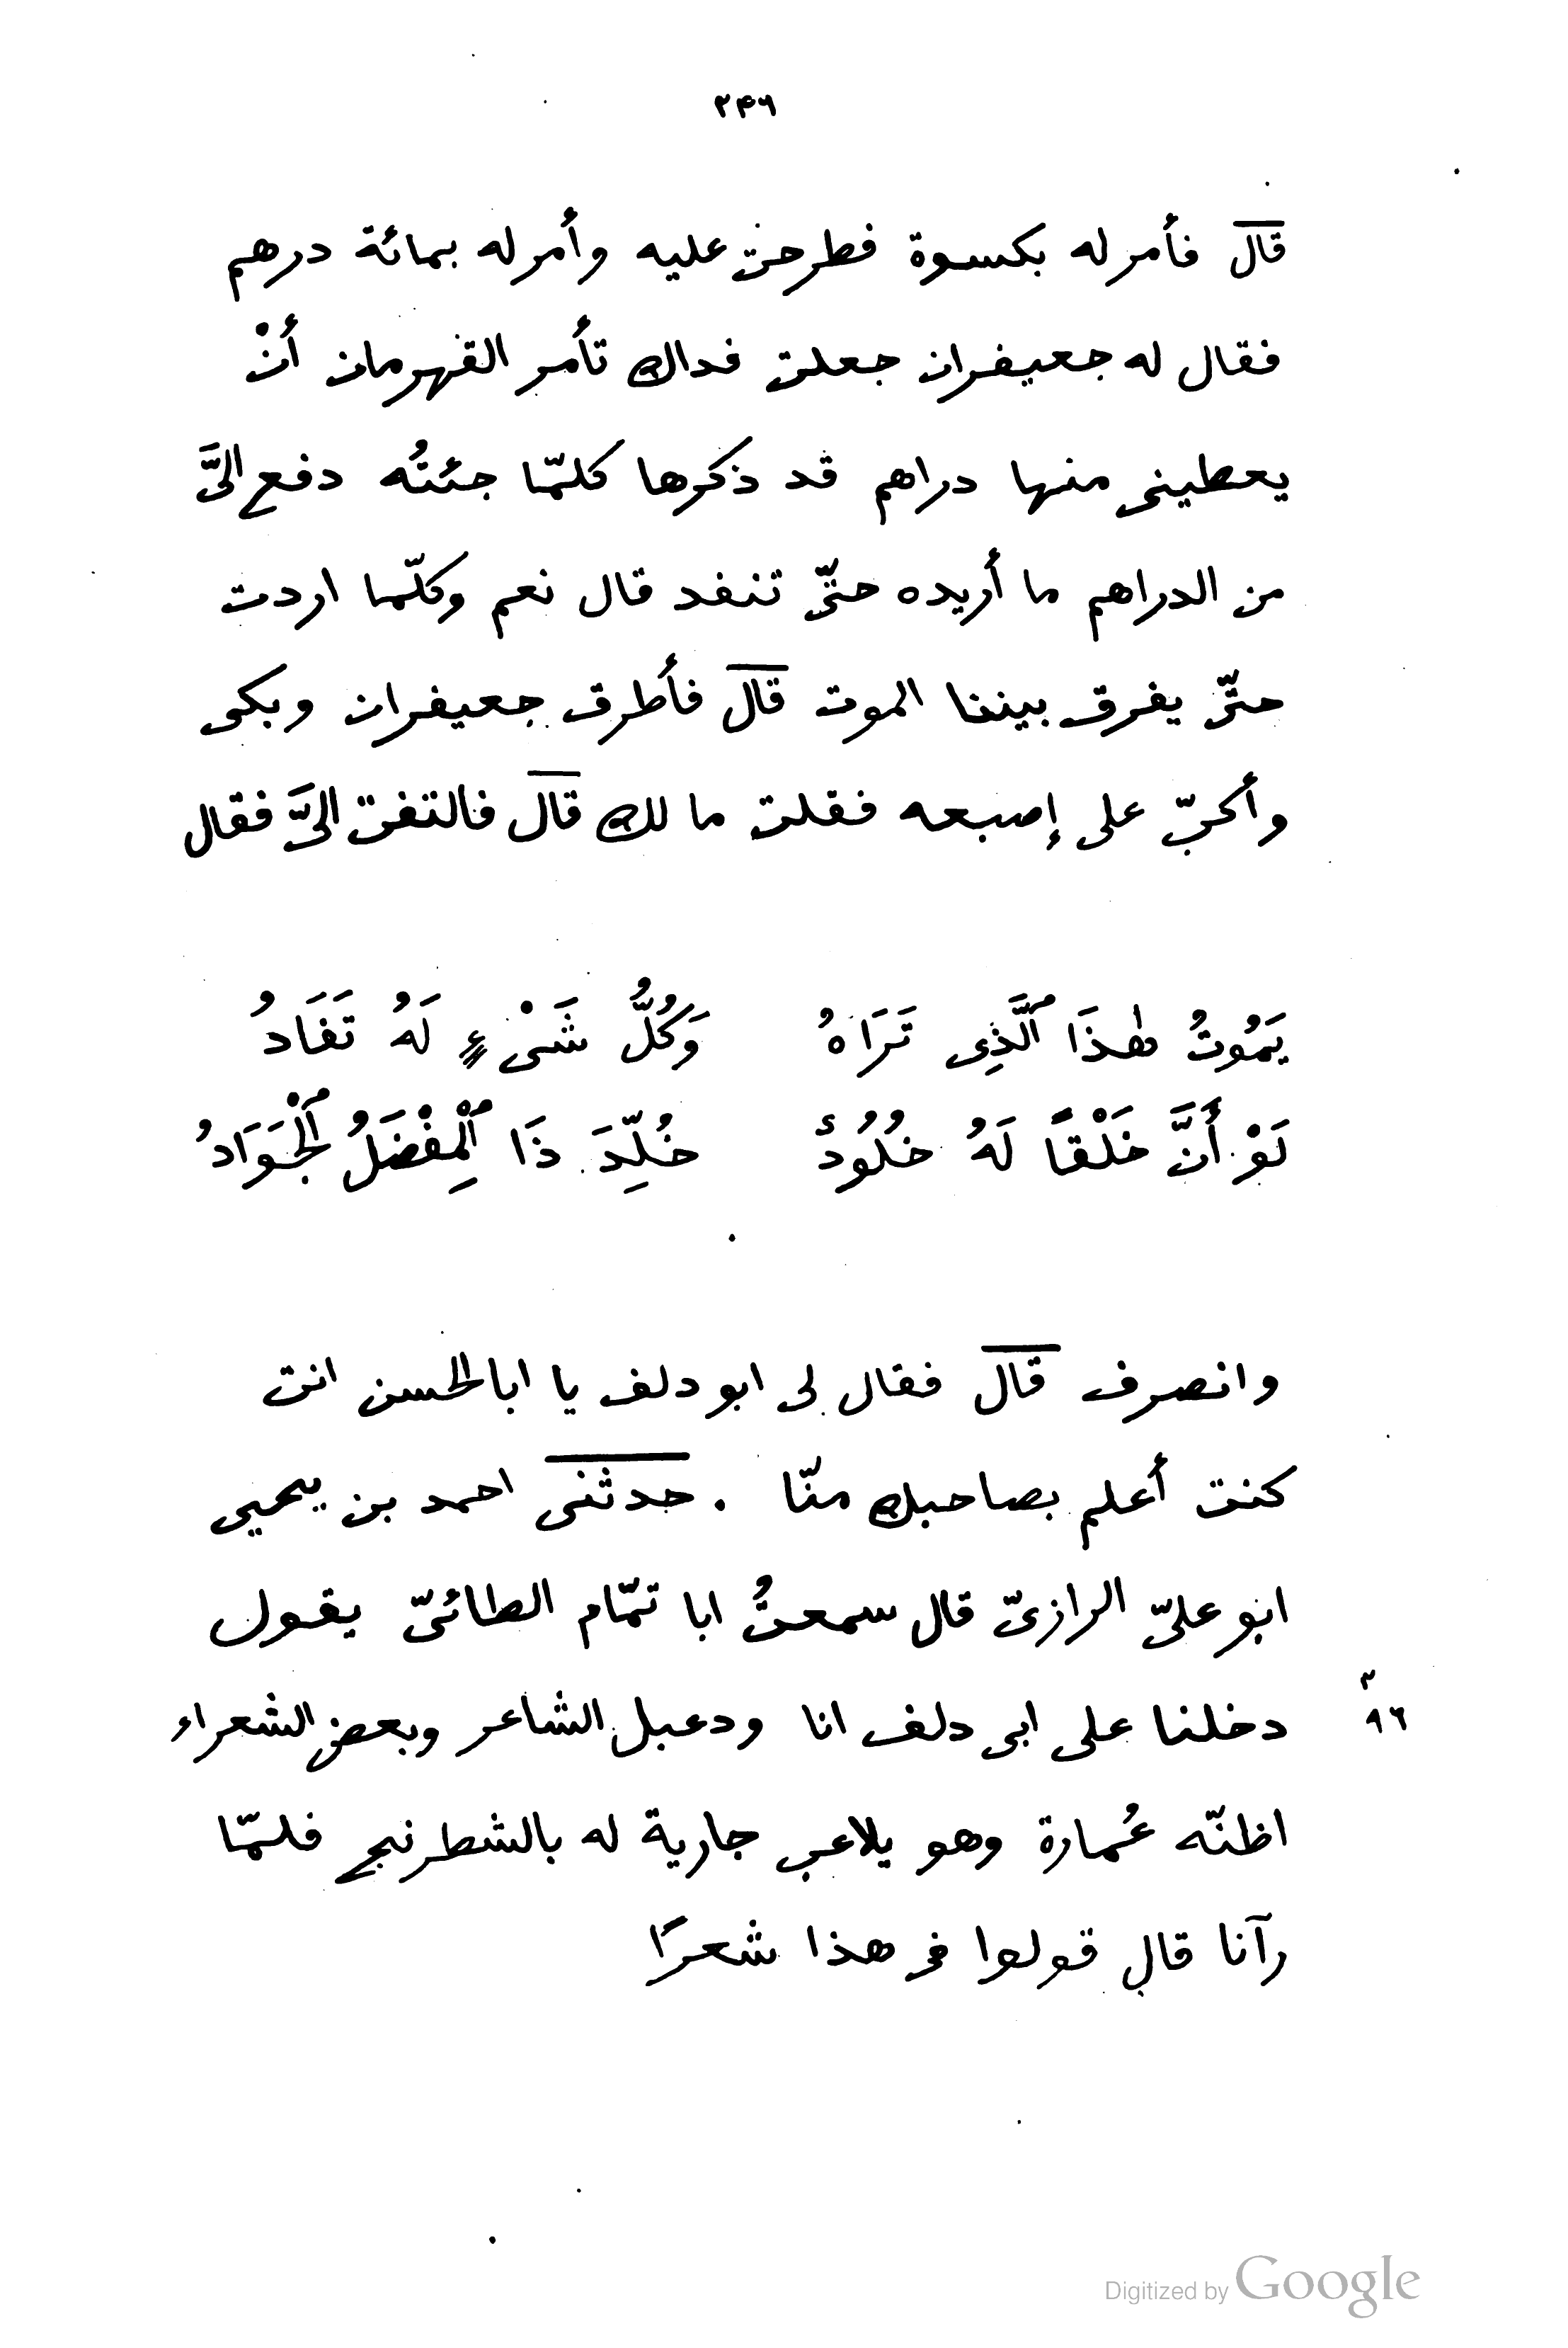 ٢٤٦
قال فأمر له بكسوة فطرحت عليه وأمر له بمائة درهم
فقال له جعيفران جعلت فداك تأمر القهرمان أنْ
يعطينى منها دراهم قد ذكرها كلّما جئتُه دفع الىَّ
من الدراهم ما أريده حتّى تنفد قال نعم وكلّما اردت
حتّى يفرق بيننا الموت قال فأطرق جعيفران وبكى
وأكبّ على إصبعه فقلت ما لك قال فالتفت الىَّ فقال
يَمُوتُ هٰذَا ٱلَّذِى تَرَاهُ وَكُلُّ شَىْءٍ لَهُ نَفَادُ
لَوْ أَنَّ خَلْقًا لَهُ خُلُودٌ خُلِّدَ ذَا ٱلْمِفْضَلُ ٱلْجَوَادُ
وانصرف قال فقال لى ابو دلف يا ابا الحسن انت
كنت أعلم بصاحبك منّا . حدثنى احمد بن يحيى
ابو علىّ الرازىّ قال سمعتُ ابا تمّام الطائىّ يقول
دخلنا على ابى دلف انا ودعبل الشاعر وبعض الشعراء
٣
٩٦
اظنّه عُمارة وهو يلاعب جارية له بالشطرنج فلمّا
رآنا قال قولوا فى هذا شعرًا
Digitized by Google